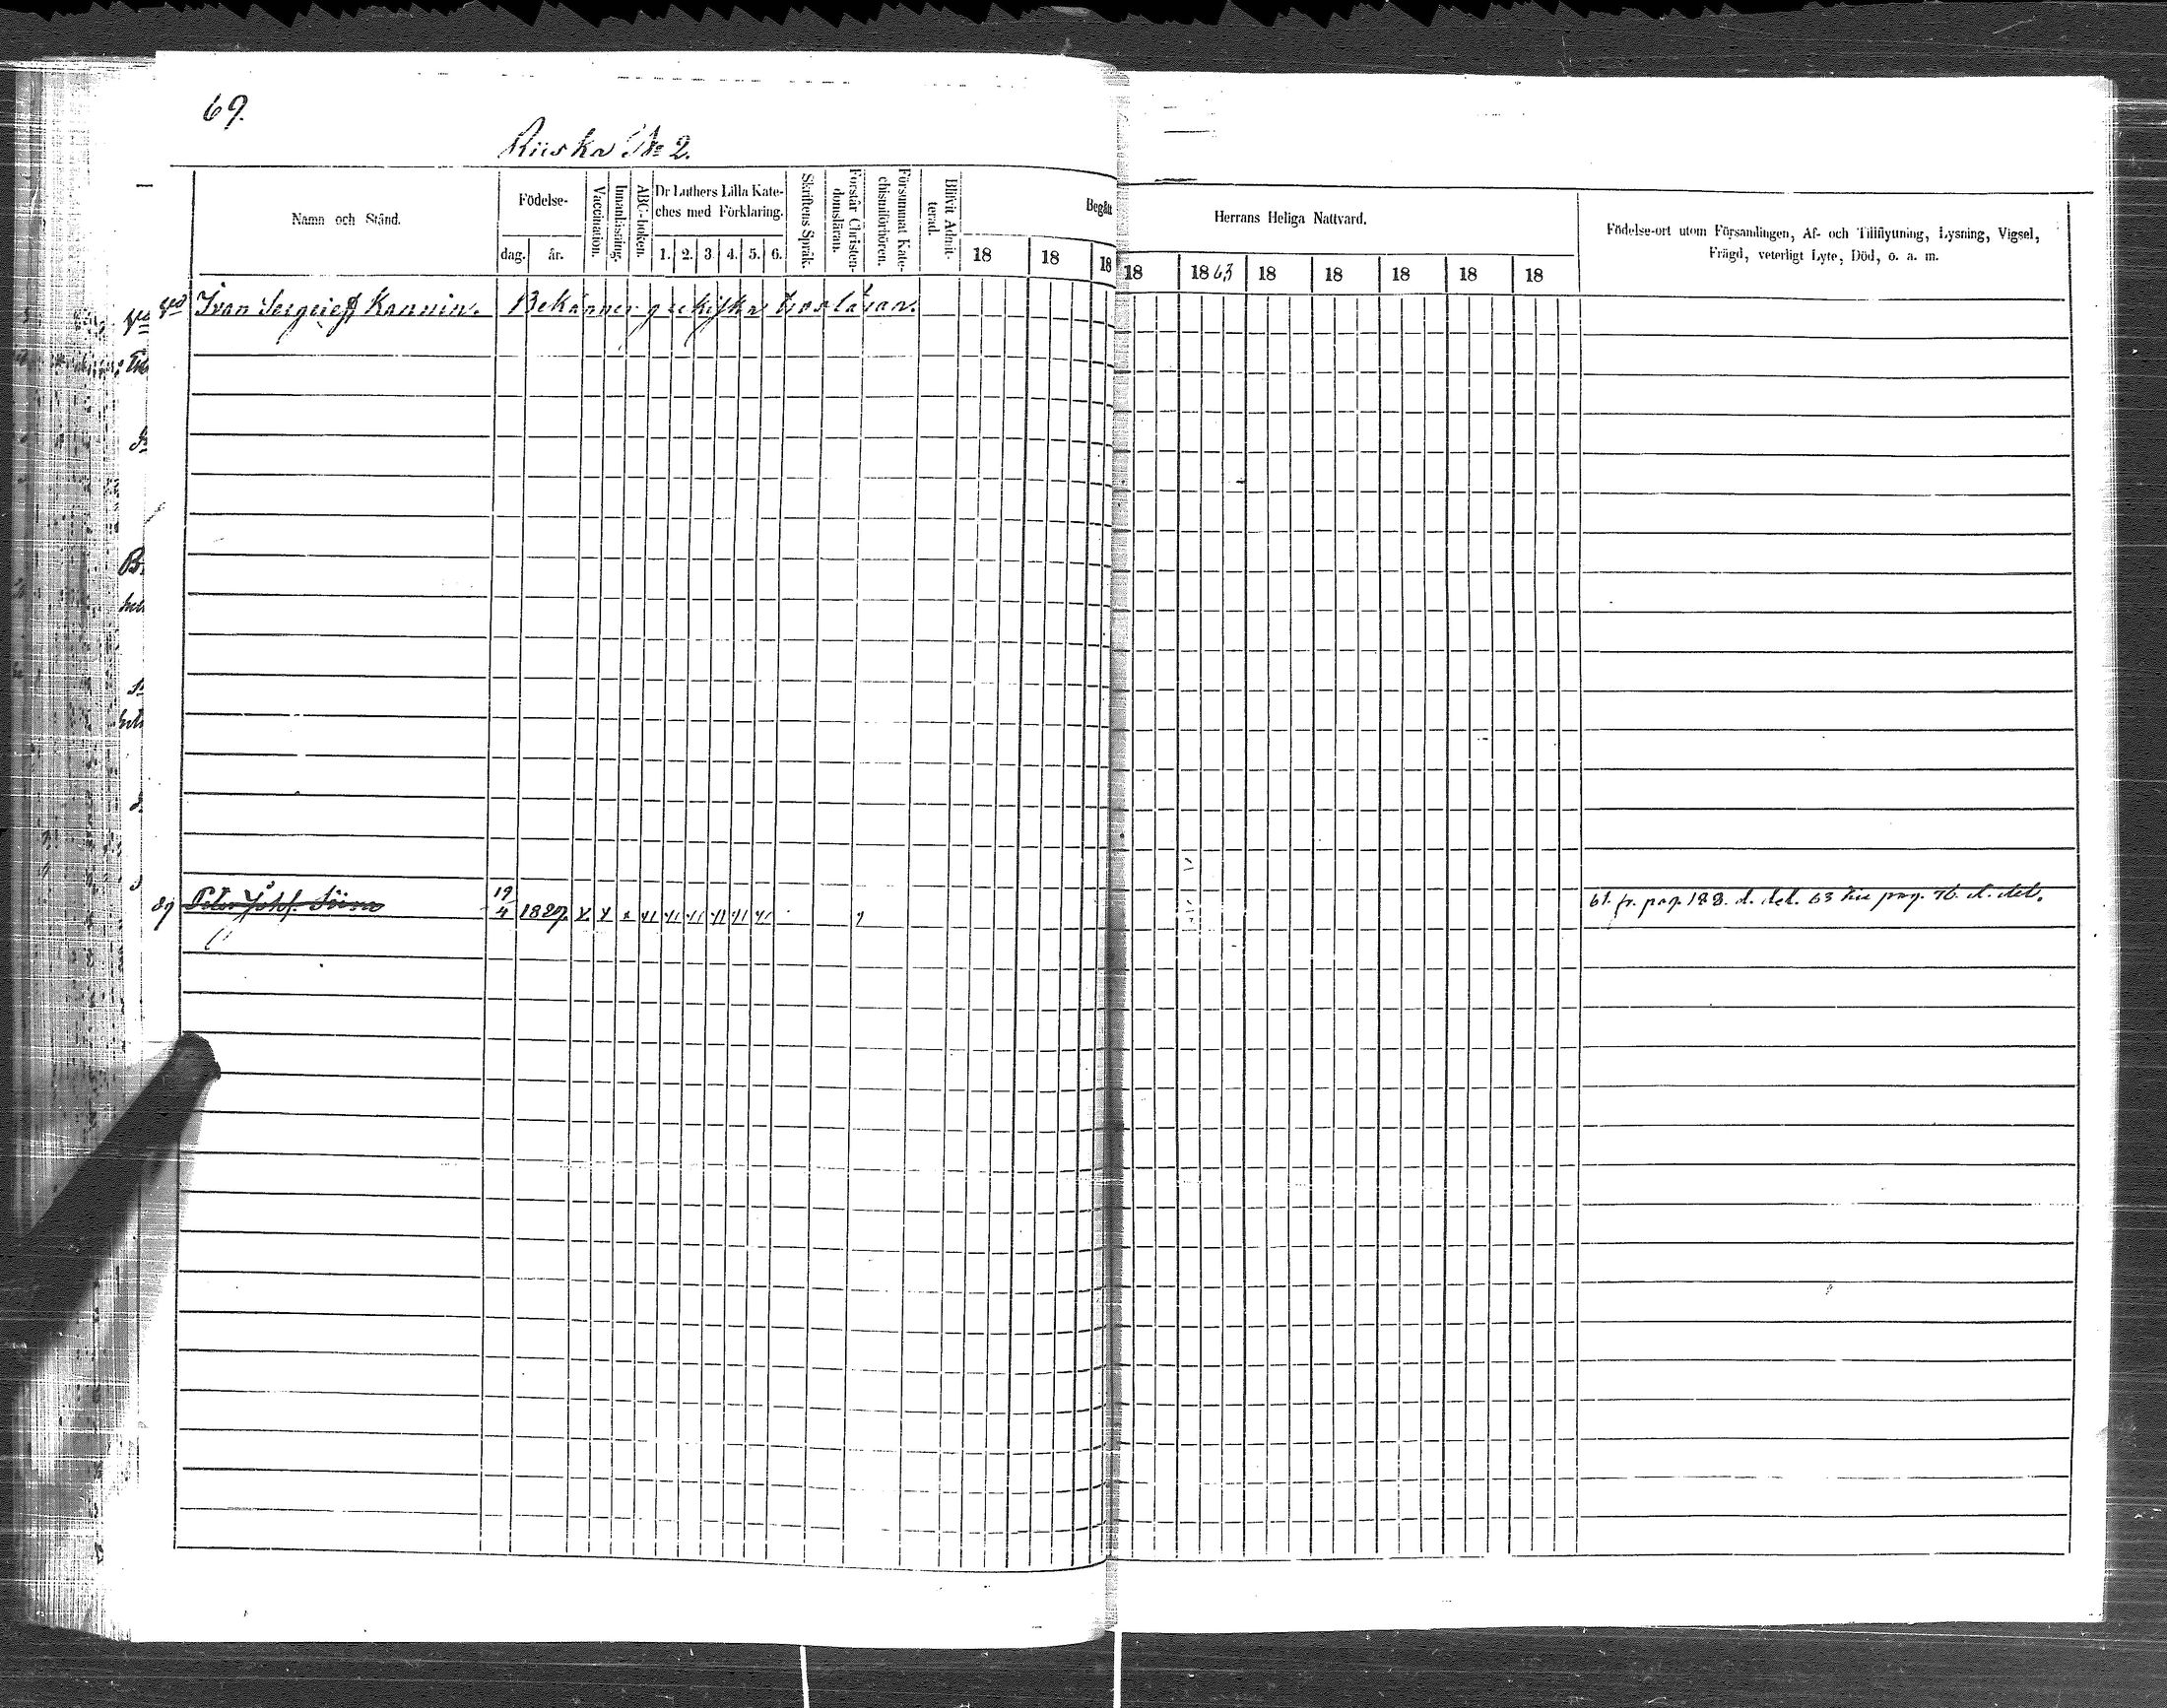 69.
Riiska No 2.
Namn och Stånd.
Födelse-
dag. år.
Vaccination.
Innanläsning.
ABC-boken.
Dr Luthers Lilla Kate-
ches med Förklaring.
1. 2. 3. 4. 5. 6.
Skriftens Språk.
Förstår Christen-
domsläran.
Försummat Kate-
chismiförhören.
Blifvit Admit-
terad.
Begått
18 18 18
Herrans Heliga Nattvard.
18 1863 18 18 18 18 18
Födelse-ort utom Församlingen, Af- och Tillflyttning, Lysning, Vigsel,
Frägd, veterligt Lyte, Död, o. a. m.
Ivan Sergeieff Kannin. Bekänner grekiska trosläran.
dg Peter Johs. 19/4 1827
61. fr. pag. 188. d. del. 63 pag. 76. d. del.